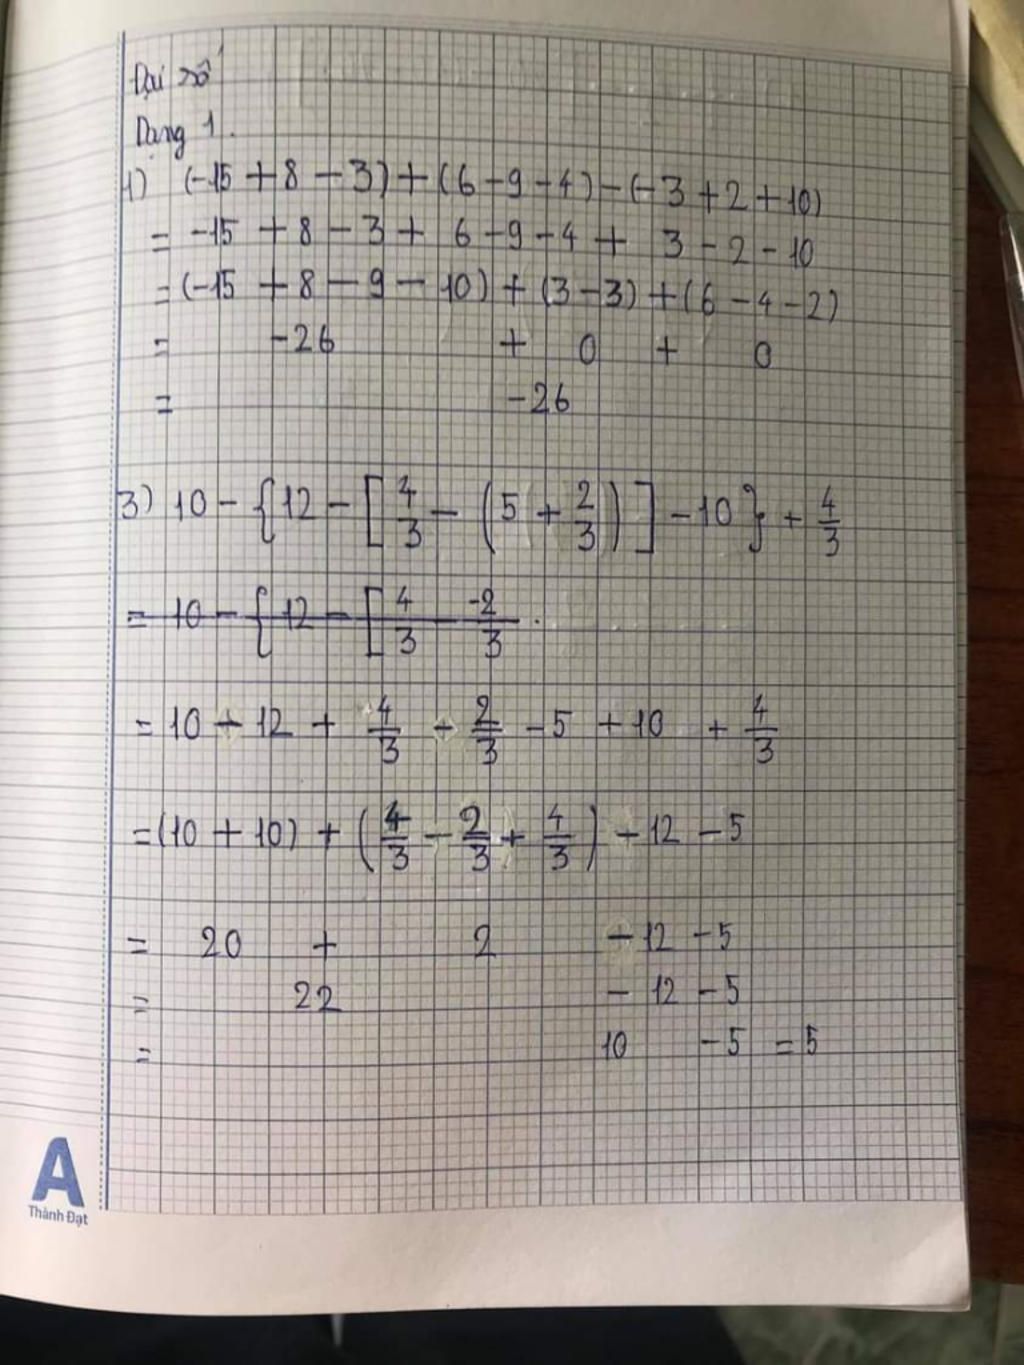 Đại số
Dạng 1.
1) (-15 + 8 - 3) + (6 - 9 - 4) - (-3 + 2 + 10)
= -15 + 8 - 3 + 6 - 9 - 4 + 3 - 2 - 10
= (-15 + 8 - 9 - 10) + (3 - 3) + (6 - 4 - 2)
= -26 + 0 + 0
= -26
3) 10 - {12 - [4/3 - (5 + 2/3)] - 10} + 4/3
= 10 - {12 - [4/3 - -2/3 .
= 10 - 12 + 4/3 - 2/3 - 5 + 10 + 4/3
= (10 + 10) + (4/3 - 2/3 + 4/3) - 12 - 5
= 20 + 2 - 12 - 5
= 22 - 12 - 5
= 10 - 5 = 5
A
Thành Đạt